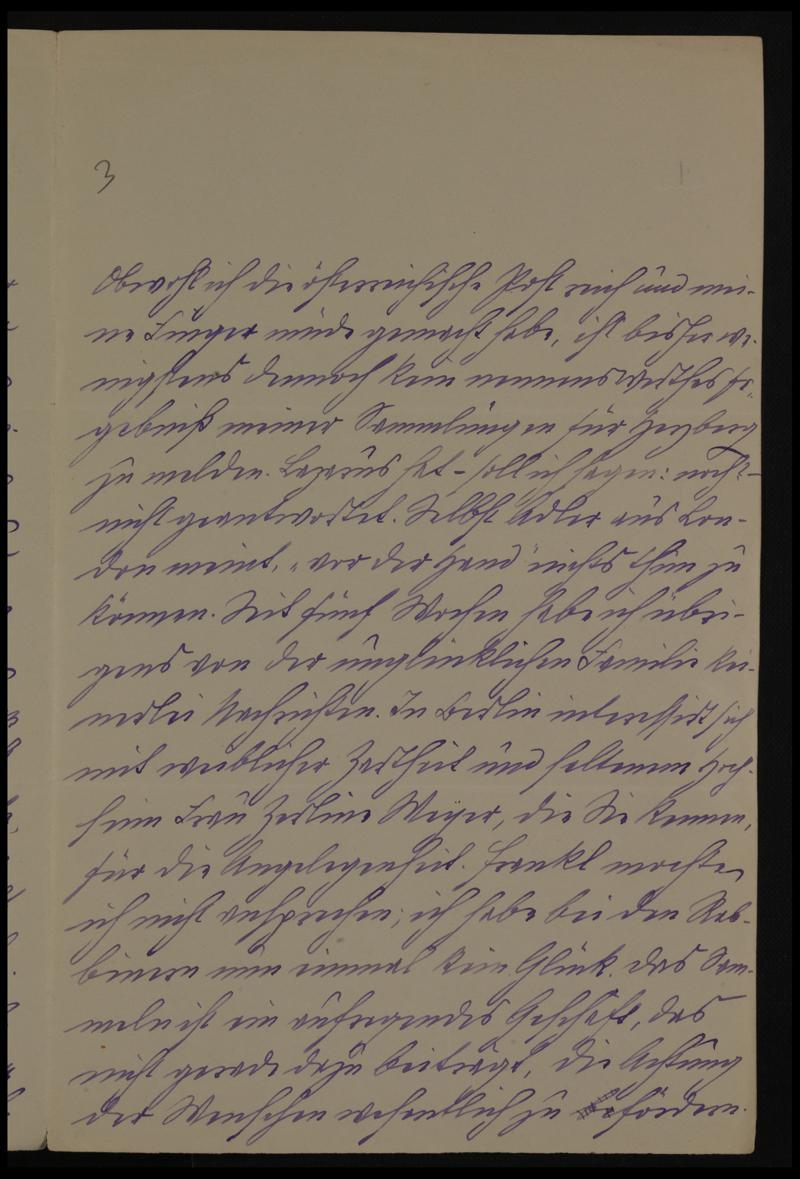 3
Obwohl ich die österreichische Post reich und mei-
ne Finger müde gemacht habe, ist bisher we-
nigstens dennoch kein nennenswerthes Er-
gebniß meiner Sammlungen für Herzberg
zu melden. Lazarus hat – soll ich sagen: noch? –
nicht geantwortet. Selbst Adler aus Lon-
don meint, „vor der Hand“ nichts thun zu
können. Seit fünf Wochen habe ich übri-
gens von der unglücklichen Familie kei-
nerlei Nachrichten. In Berlin interessirt sich
mit weiblicher Zartheit und seltenem Hoch-
sinn Frau Zerline Meyer, die Sie kennen,
für die Angelegenheit. Frankl mochte
ich nicht ansprechen; ich habe bei den Rab-
binern nun einmal kein Glück. Das Sam-
meln ist ein aufregendes Geschäft, das
nicht gerade dazu beiträgt, die Achtung
der Menschen wesentlich zu fördern.